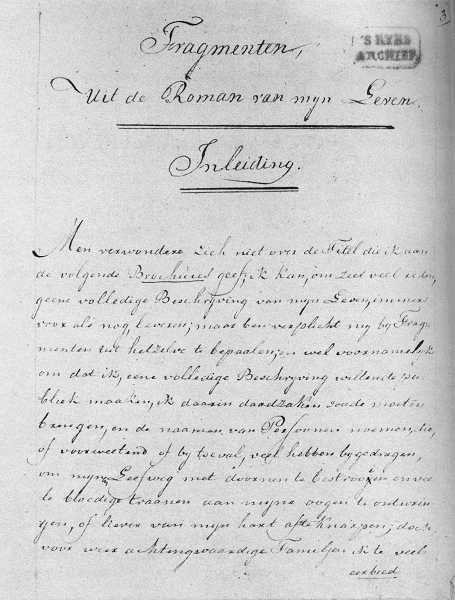 3
'S RYKS
ARCHIEF.
Fragmenten,
Uit de Roman van myn Leven.
Inleiding.
Men verwondere zich niet over de Titel die ik aan
de volgende Brochüres geef; ik kan, om zeer veel reden,
geene volledige Beschryving van myn Leven, immers
voor als nog leveren; maar ben verplicht my by Frag-
menten tot hetzelve te bepaalen; en wel voornamelyk
om dat ik, eene volledige Beschryving willende pu-
bliek maaken, ik daarin daadzaken zoude moeten
brengen, en de naamen van Persoonen noemen, die,
of voorweetend of by toeval, veel hebben bygedragen,
om myn Leefweg met doornen te bestrooijen en vee-
le bloedige traanen aan myne oogen te ontwrin-
gen, of liever van myn hart af te knappen; doch
voor wier achtingswaardige Familjen ik te veel
eerbied